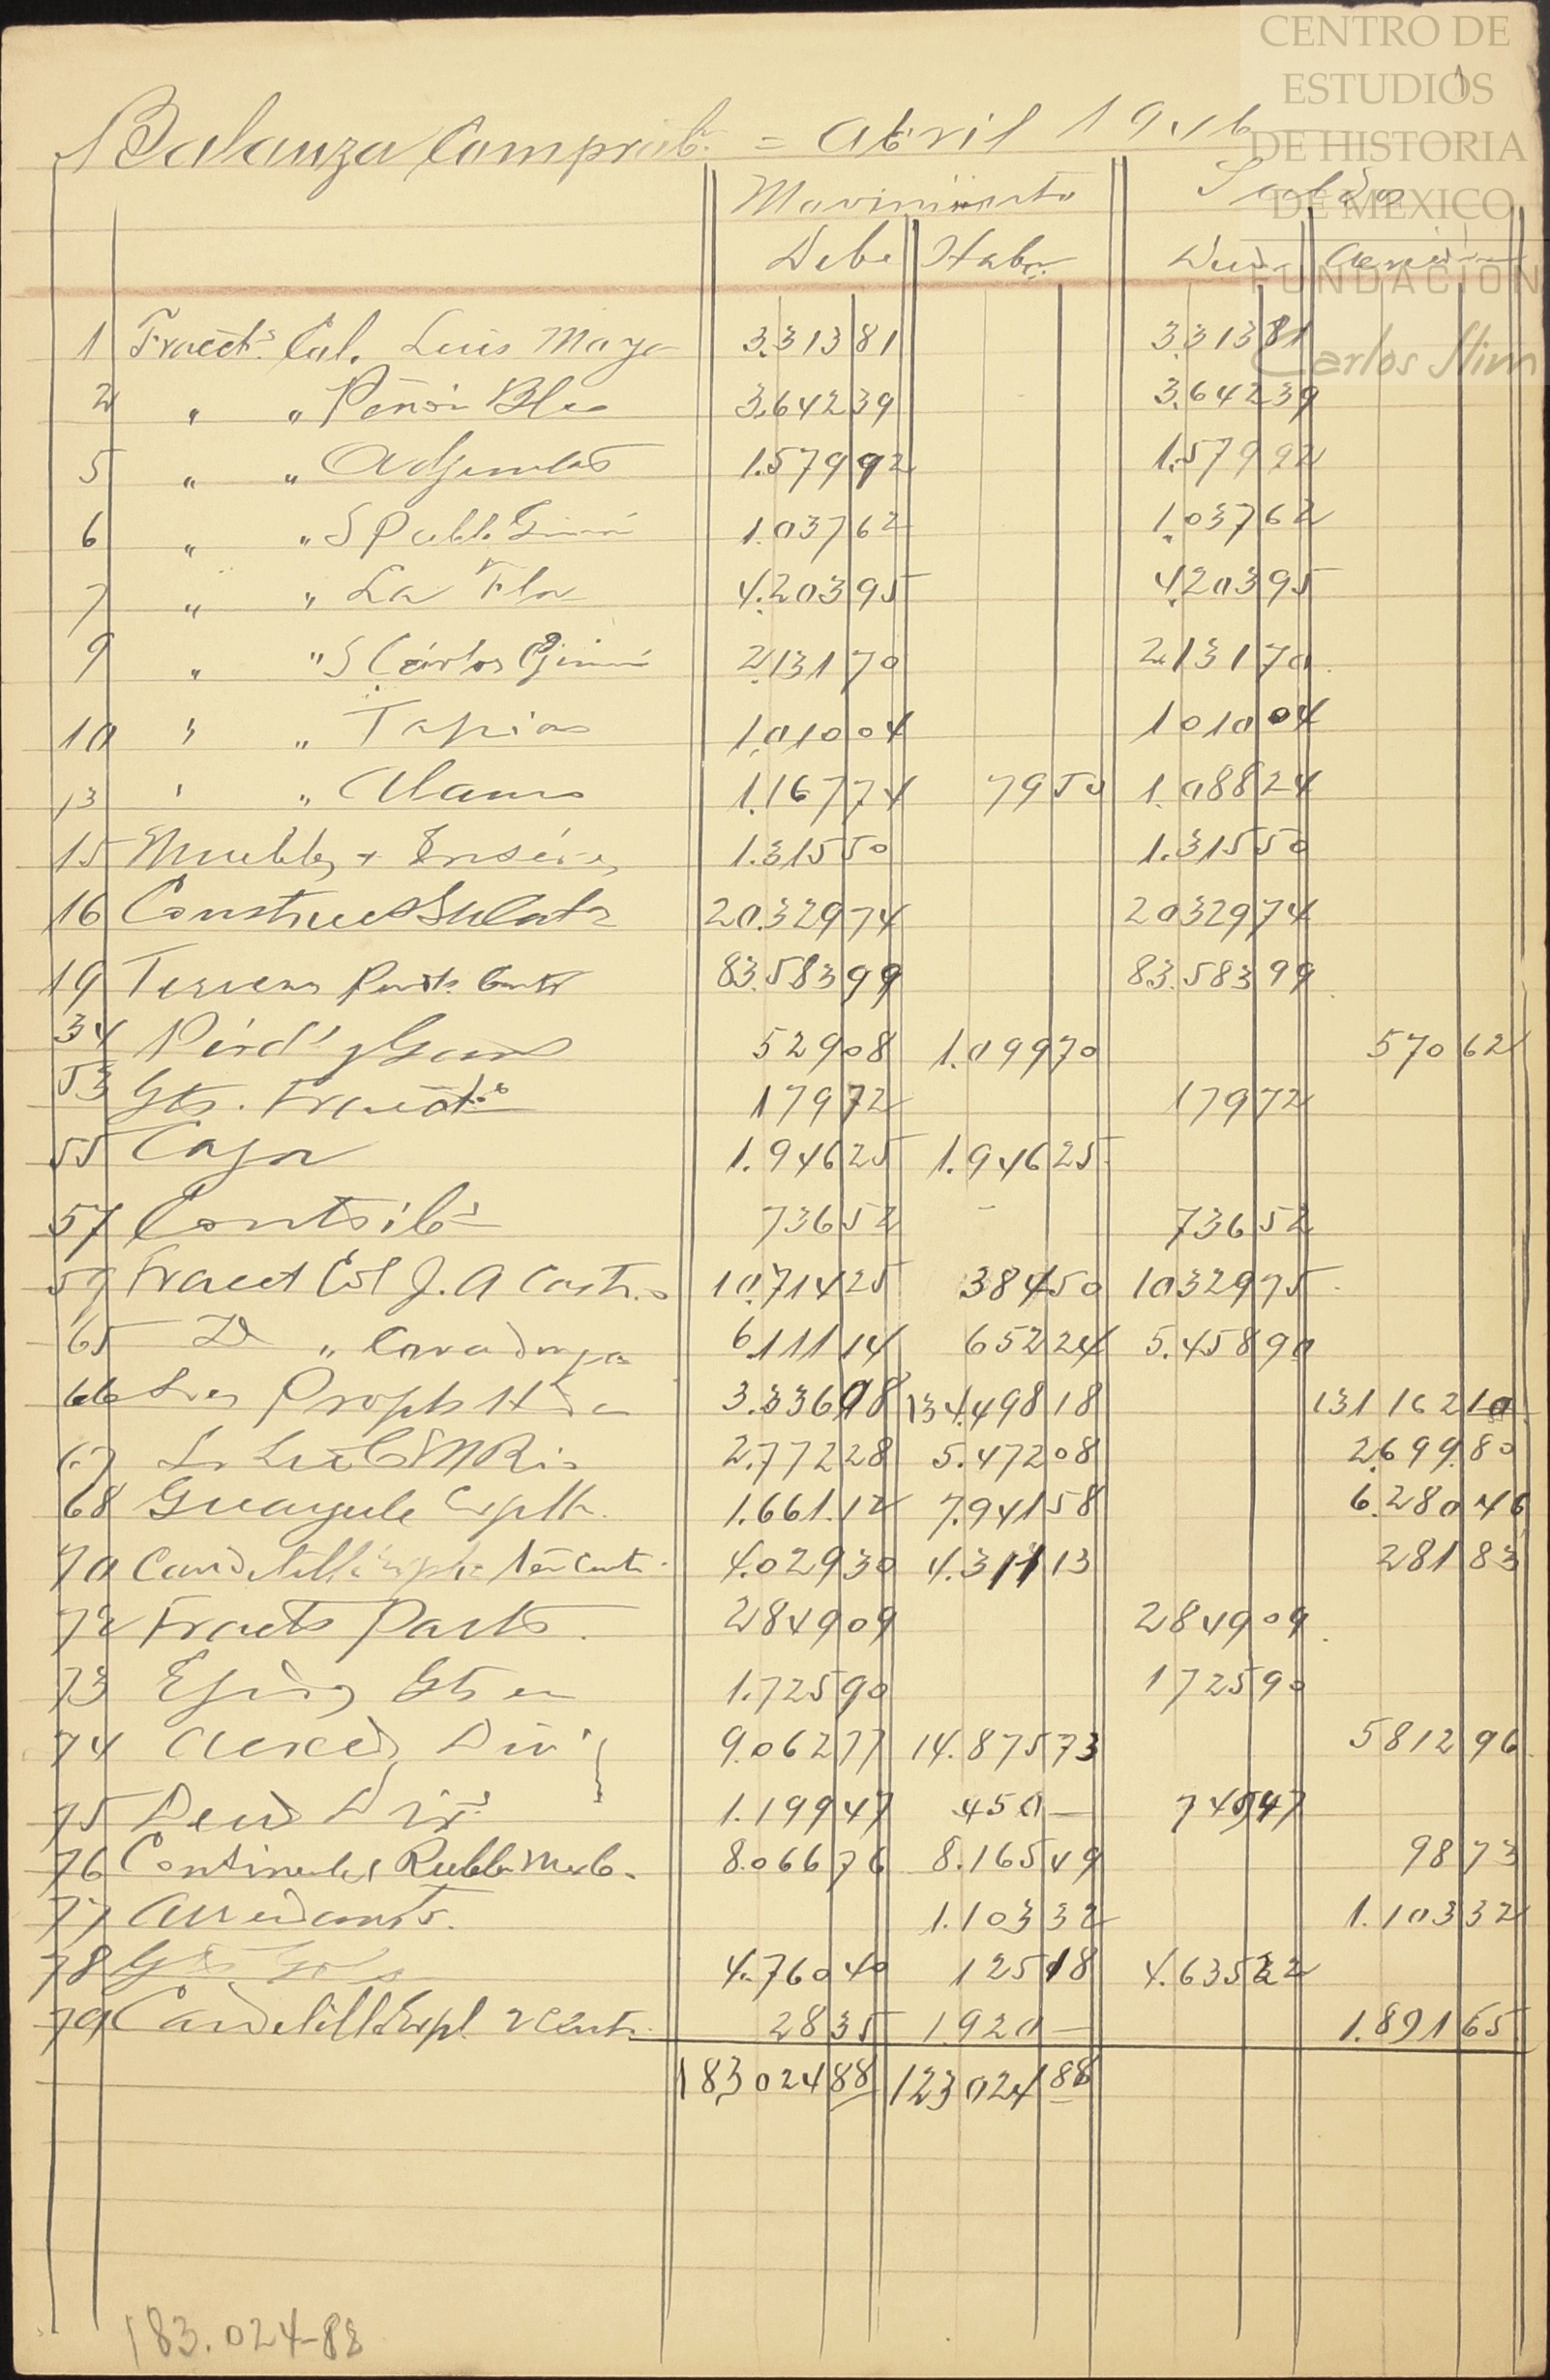 CENTRO DE
ESTUDIOS
DE HISTORIA
DE MEXICO
FUNDACIÓN
Carlos Slim
1
Balanza Comprob. = Abril 1946
Movimiento Saldos
Debe Haber Deud. Acreed.
1 Fracct.s Col. Luis Moya 3.313 81 3.313 81
2 " " Peñón Blco 3.642 39 3.642 39
5 " " Adjuntas 1.579 92 1.579 92
6 " " S Pablo 1.037 62 1.037 62
7 " " La Flor 4.203 95 4.203 95
9 " " S Cárlos 2.131 70 2.131 70
10 " " Tapias 1.010 04 1 010 04
13 " " Alamos 1.167 74 79 50 1.088 24
15 Muebles + Enseres 1.315 50 1.315 50
16 Construcc 20.329 74 20 329 74
19 Terrenos 83.583 99 83.583 99
34 Pérd.s y Gans 529 08 1.099 70 570 62
53 Gts. Fracct.s 179 72 179 72
55 Caja 1.946 25 1.946 25
57 Contrib.s 736 52 - 736 52
59 Fracct Col J. A Castro 10.714 25 384 50 10 329 75
65 D " Covadonga 6.111 14 652 24 5.458 90
66 Props Hda 3.336 08 134.498 18 131 162 10
67 2.772 28 5.472 08 2.699 80
68 Guayule Explt. 1.661.12 7.941 58 6.280 46
70 Candelilla 4.029 30 4.311 13 281 83
72 Fracts Parts. 2 849 09 2 849 09
73 Ejidos 1.725 90 1 725 90
74 Acreeds Div.s 9.062 77 14.875 73 5 812 96
75 Deud Div.s 1.199 47 450 — 749 47
76 Continental Rubber Mex Co. 8.066 76 8.165 49 98 73
77 Arrendamts. 1.103 32 1.103 32
78 Gts 4.760 40 125 18 4.635 22
79 Candelilla Expl. 28 35 1.920 — 1.891 65
183 024 88 123 024 88
183.024-88